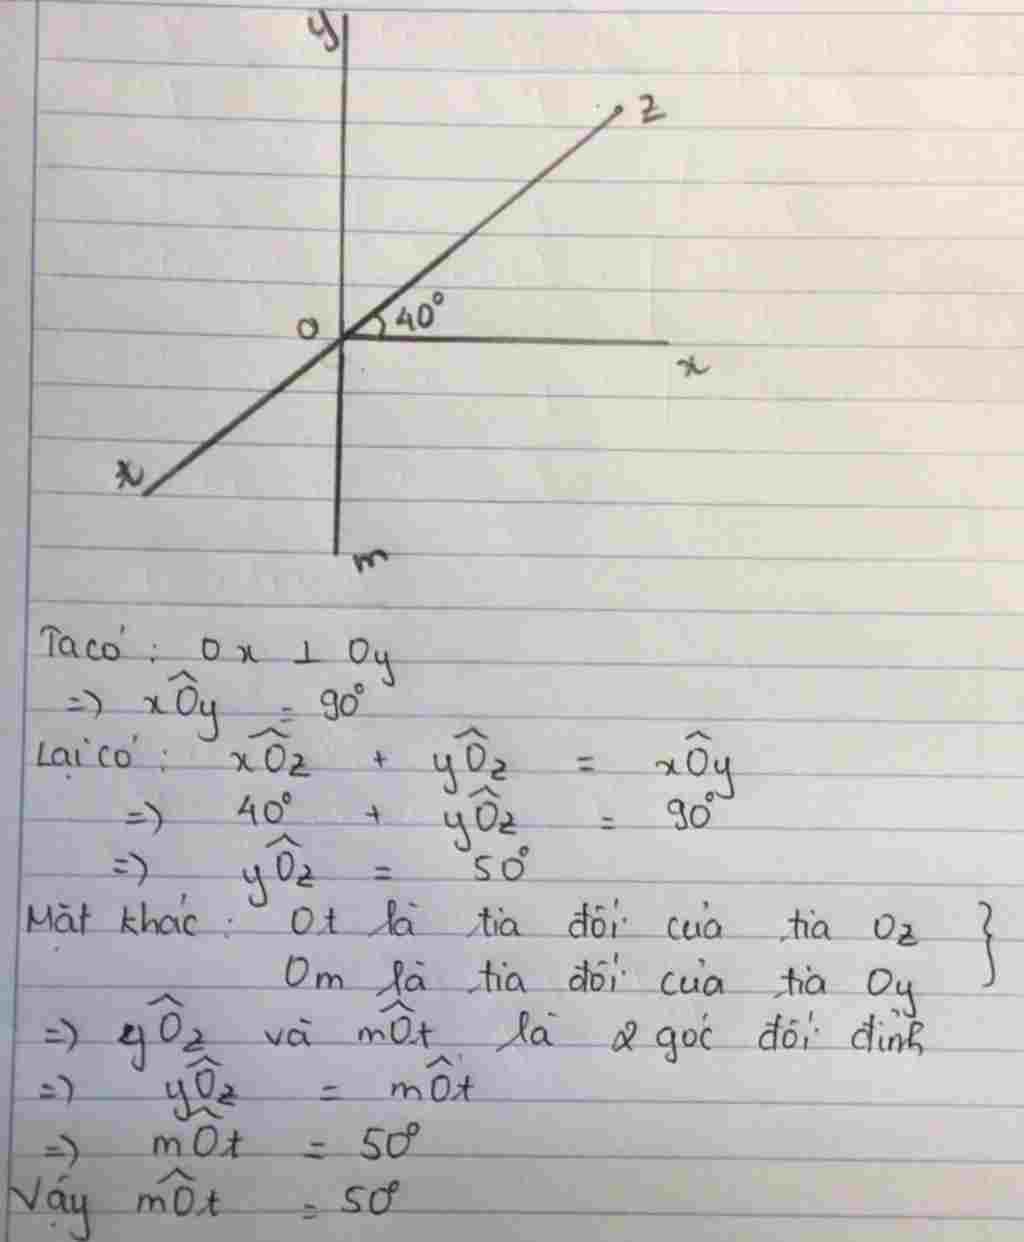 y
z
O
40°
x
x
m
Ta có: Ox ⊥ Oy
=> xÔy = 90°
Lại có: xÔz + yÔz = xÔy
=> 40° + yÔz = 90°
=> yÔz = 50°
Mặt khác: Ot là tia đối của tia Oz }
Om là tia đối của tia Oy
=> yÔz và mÔt là 2 góc đối đỉnh
=> yÔz = mÔt
=> mÔt = 50°
Vậy mÔt = 50°